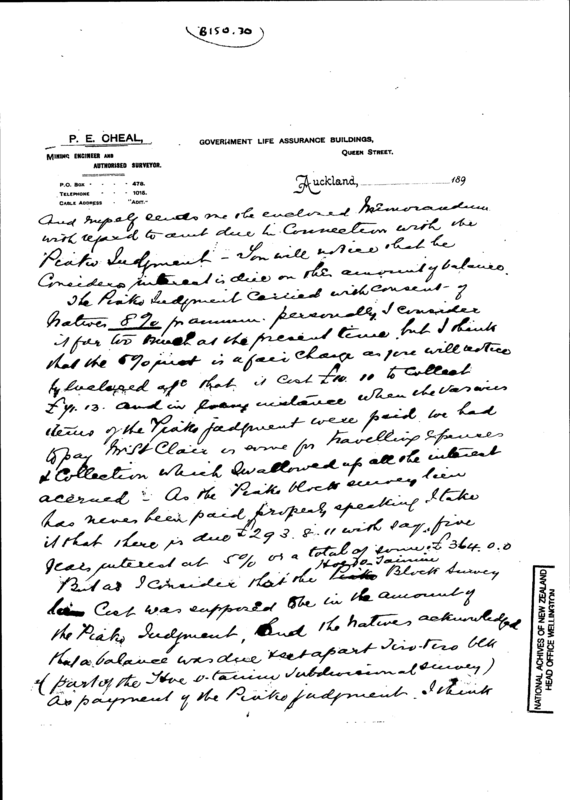 B150.30
P. E. CHEAL,
MINING ENGINEER AND
AUTHORISED SURVEYOR.
P.O. BOX - - - 478.
TELEPHONE - - 1015.
CABLE ADDRESS "ADIT."
GOVERNMENT LIFE ASSURANCE BUILDINGS,
QUEEN STREET.
Auckland, 189
And sends me the enclosed Memorandum
with regard to amt due in Connection with the
Piako Judgment - You will notice that he
Considers interest is due on the amount of balance.
The Piako Judgment Carried with consent of
Natives 8% per annum. personally I consider
it far too much at the present time but I think
that the 5% is a fair charge as you will notice
by Enclosed a/c that it cost £10. 10 to collect
£ 13. and in every instance when the various
items of the Piako judgment were paid we had
to pay Mr St Clair a sum for travelling Expenses
& Collection which swallowed up all the interest
accrued - As the Piako block survey lien
has never been paid, properly speaking I take
it that there is due £293. 8. 11 with say, five
Years interest at 5% or a total of some £364.0.0
But as I consider that the Block Survey
Cost was supposed to be in the amount of
the Piako Judgment, and the Natives acknowledged
that a balance was due & set apart blk
(part of the Subdivisional Survey)
as payment of the Piako judgment. I think
NATIONAL ACHIVES OF NEW ZEALAND
HEAD OFFICE WELLINGTON